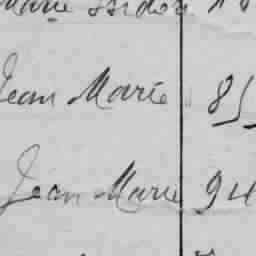 Marie Isidore
Jean Marie 85
Jean Marie 94